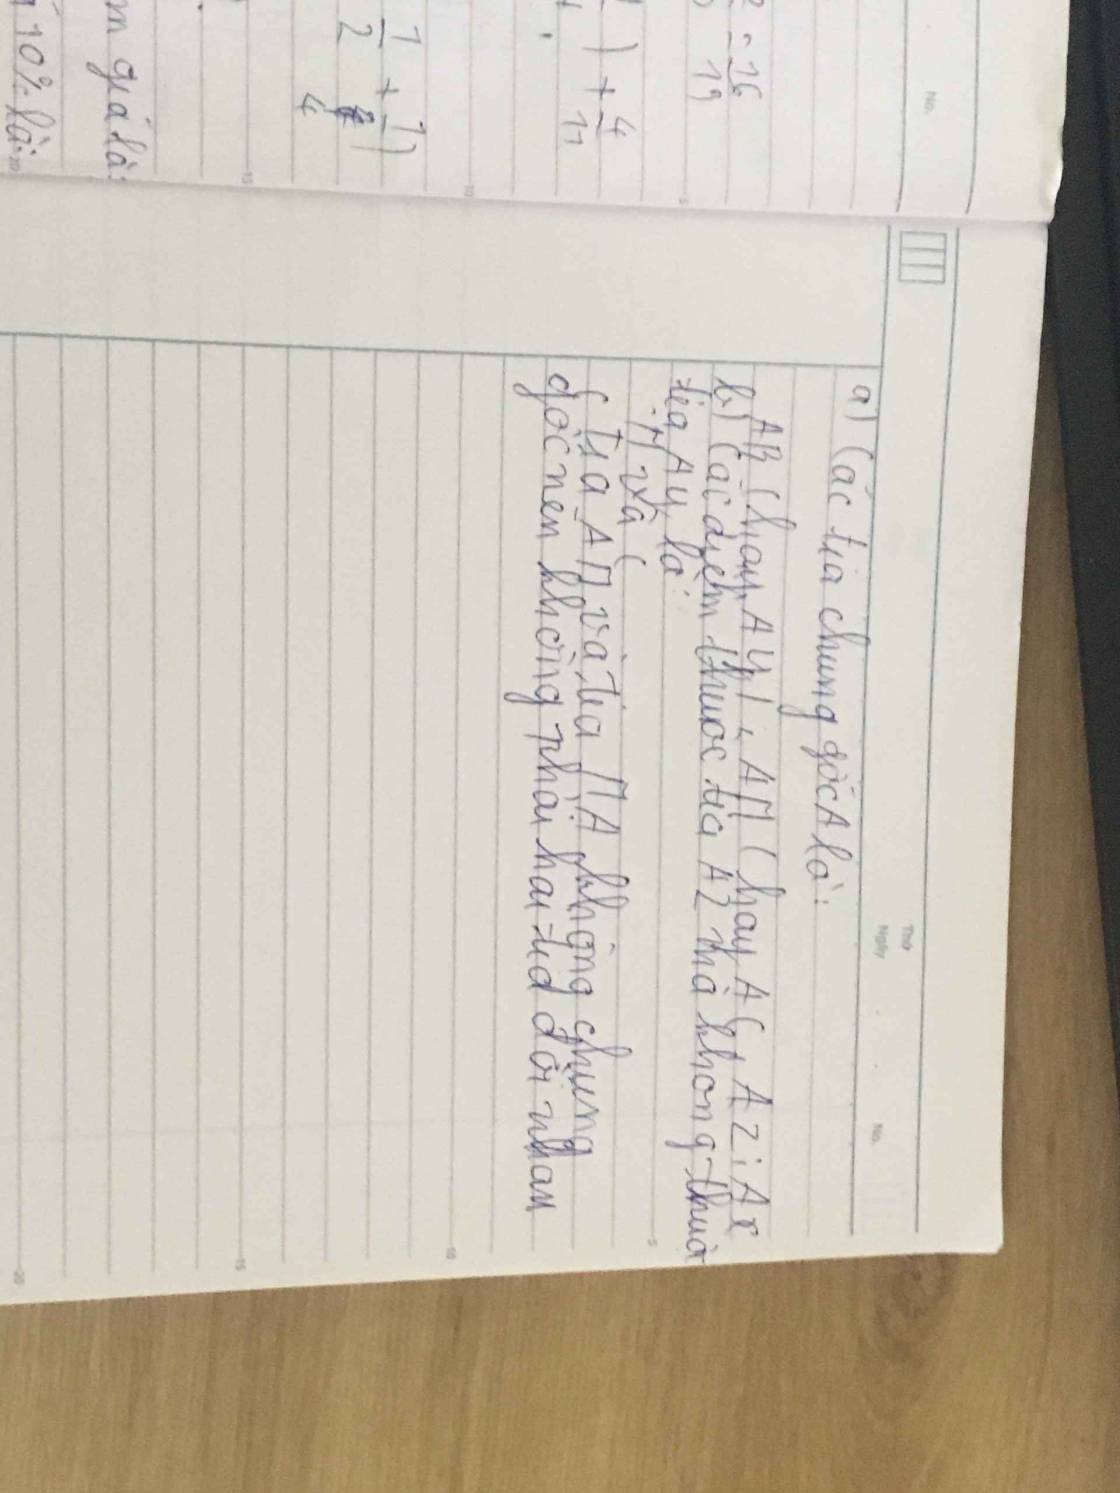 2 - 16
19
) + 4
11
1 + 1)
2 4
4
m giá là:
10% là:
No.
Thứ
Ngày
No.
a) Các tia chung gốc A là:
AB (hay Ay), AM (hay AC), Az; Ax
b) Các điểm thuộc tia Az mà không thuộc
tia Ay là:
M và C
c tia AM và tia MA không chung
gốc nên không phải hai tia đối nhau
5
10
15
20
5
10
15
20